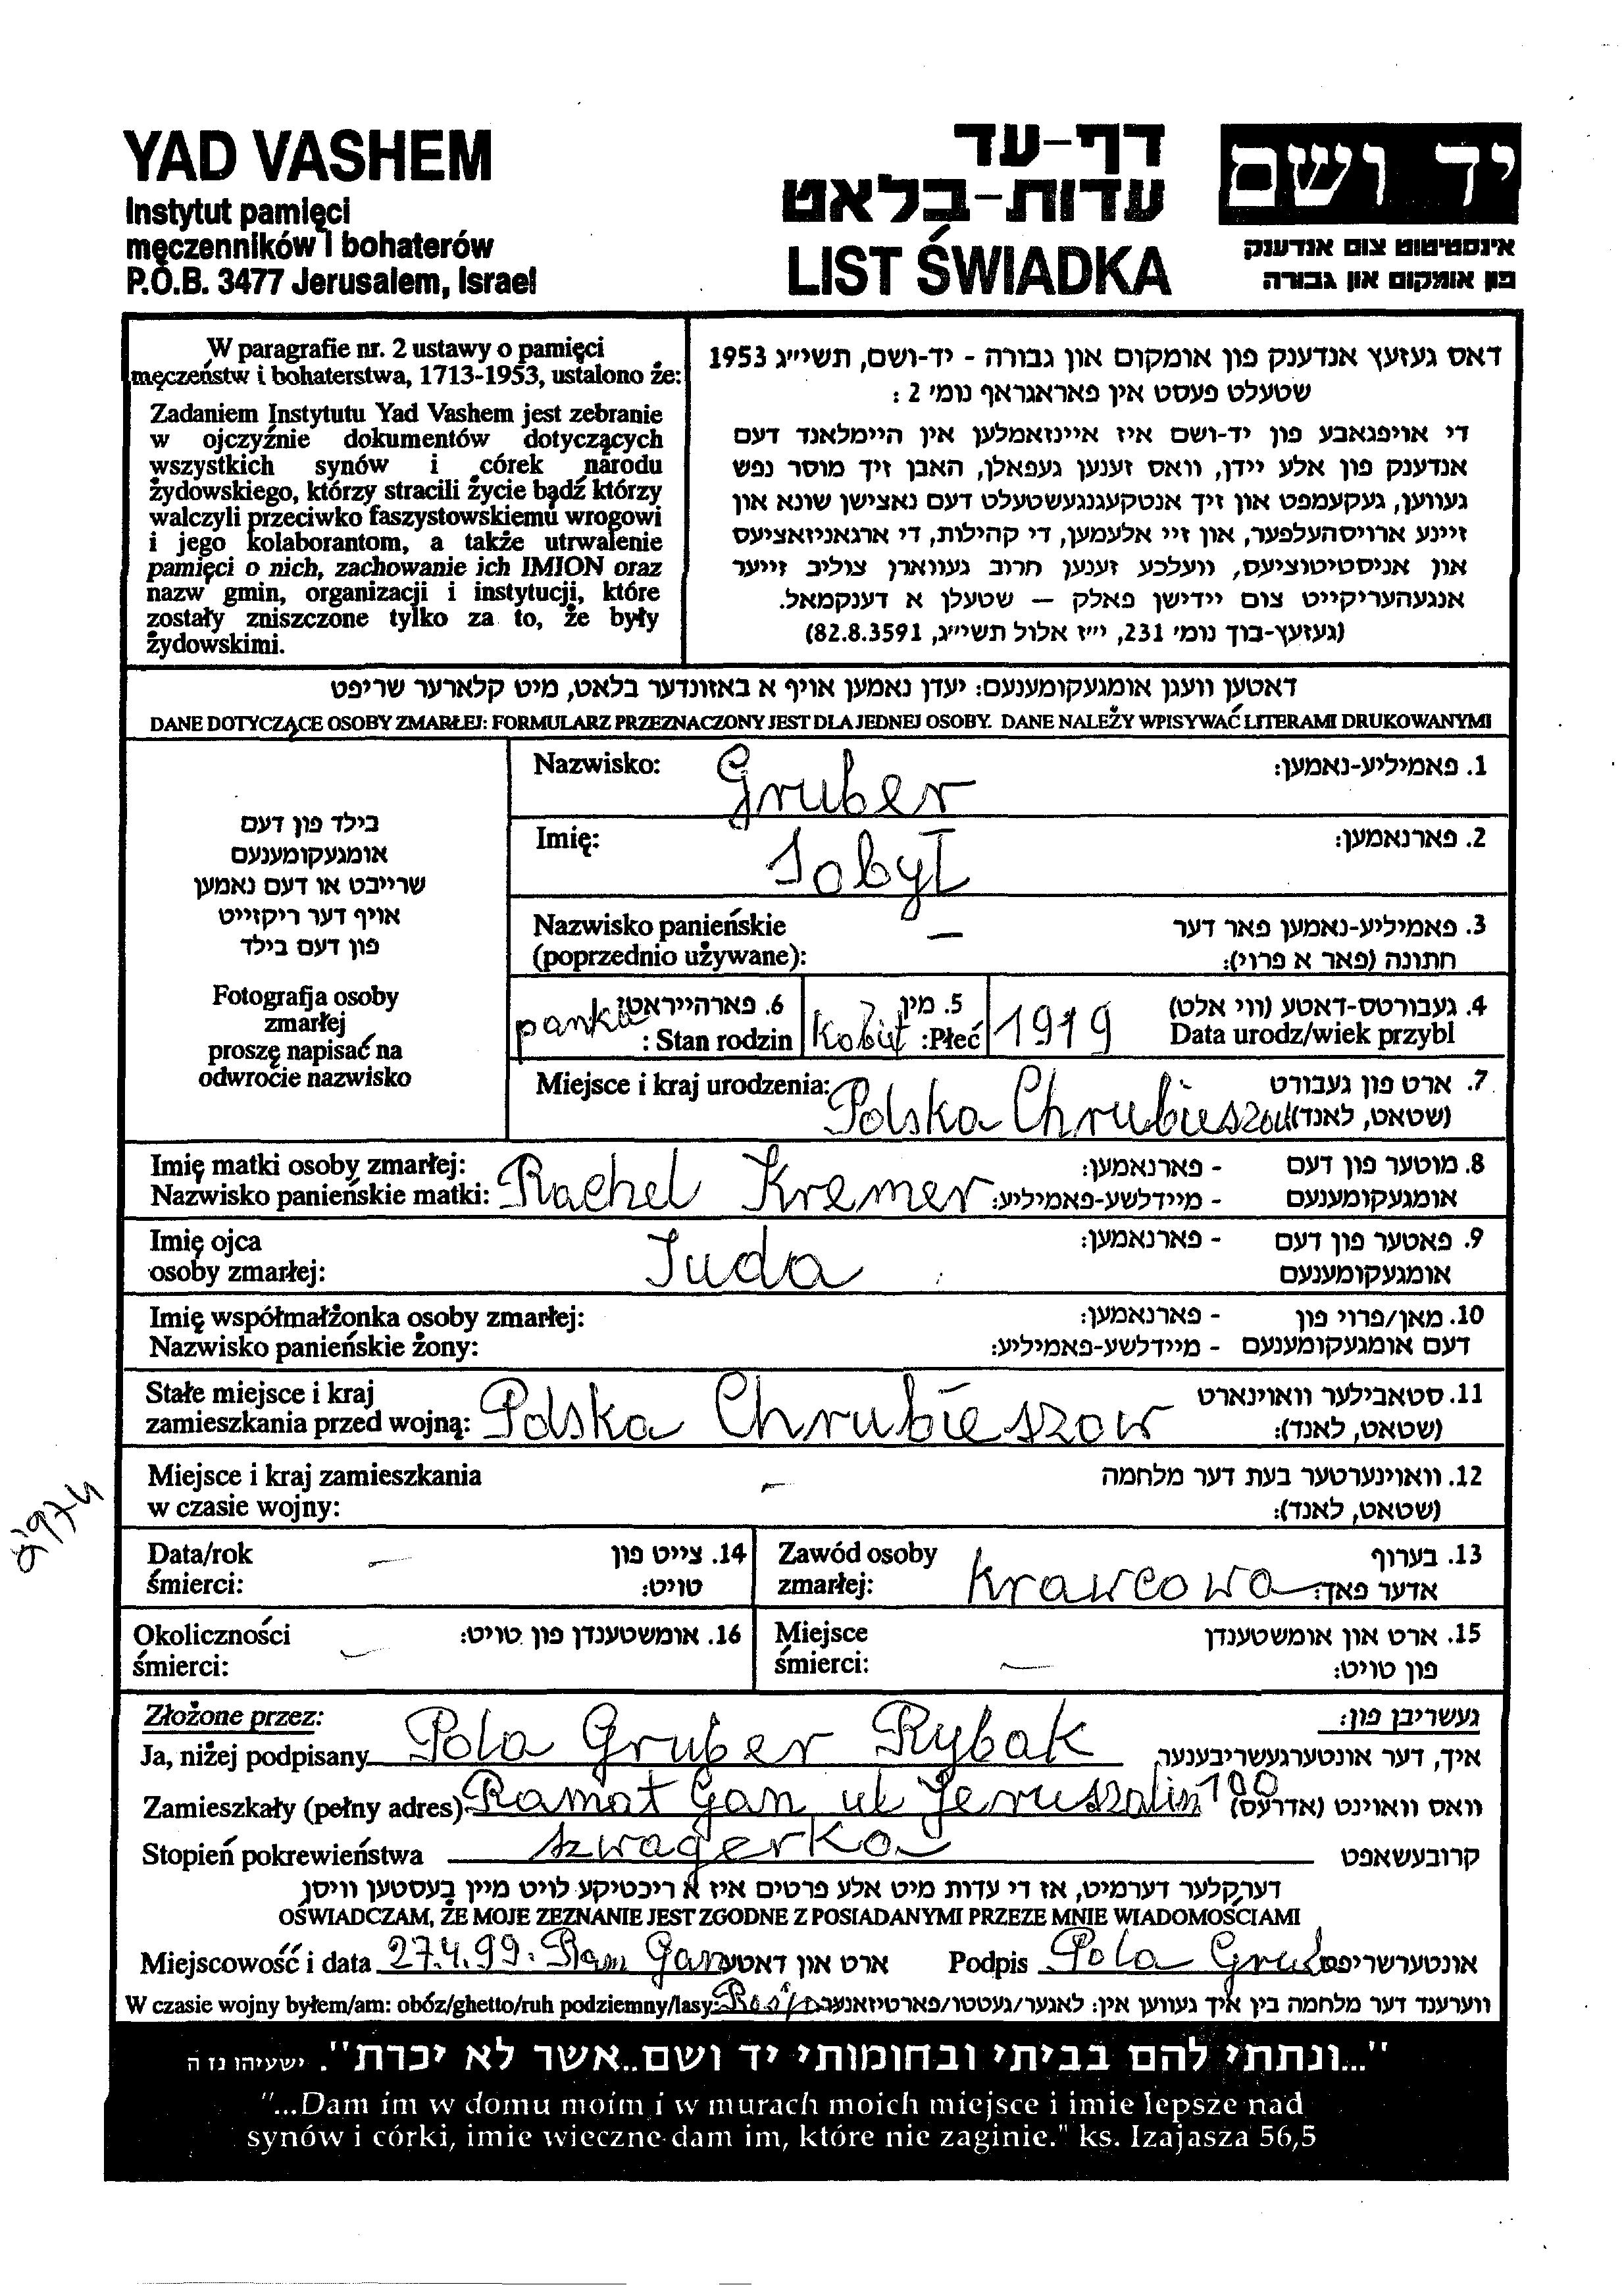 YAD VASHEM
Instytut pamięci
męczenników i bohaterów
P.O.B. 3477 Jerusalem, Israel
דף-עד
עדות-בלאט
LIST ŚWIADKA
יד ושם
אינסטיטוט צום אנדענק
פון אומקום און גבורה
W paragrafie nr. 2 ustawy o pamięci
męczeństw i bohaterstwa, 1713-1953, ustalono że:
Zadaniem Instytutu Yad Vashem jest zebranie
w ojczyźnie dokumentów dotyczących
wszystkich synów i córek narodu
żydowskiego, którzy stracili życie bądź którzy
walczyli przeciwko faszystowskiemu wrogowi
i jego kolaborantom, a także utrwalenie
pamięci o nich, zachowanie ich IMION oraz
nazw gmin, organizacji i instytucji, które
zostały zniszczone tylko za to, że były
żydowskimi.
דאס געזעץ אנדענק פון אומקום און גבורה - יד-ושם, תשי״ג 1953
שטעלט פעסט אין פאראגראף נומ׳ 2 :
די אויפגאבע פון יד-ושם איז איינזאמלען אין היימלאנד דעם
אנדענק פון אלע יידן, וואס זענען געפאלן, האבן זיך מוסר נפש
געווען, געקעמפט און זיך אנטקעגנגעשטעלט דעם נאצישן שונא און
זיינע ארויסהעלפער, און זיי אלעמען, די קהילות, די ארגאניזאציעס
און אניסטיטוציעס, וועלכע זענען חרוב געווארן צוליב זייער
אנגעהעריקייט צום יידישן פאלק – שטעלן א דענקמאל.
(געזעץ-בוך נומ׳ 231, י״ז אלול תשי״ג, 82.8.3591)
דאטען וועגן אומגעקומענעם: יעדן נאמען אויף א באזונדער בלאט, מיט קלארער שריפט
DANE DOTYCZĄCE OSOBY ZMARŁEJ: FORMULARZ PRZEZNACZONY JEST DLA JEDNEJ OSOBY. DANE NALEŻY WPISYWAĆ LITERAMI DRUKOWANYMI
בילד פון דעם
אומגעקומענעם
שרייבט או דעם נאמען
אויף דער ריקזייט
פון דעם בילד
Fotografja osoby
zmarłej
proszę napisać na
odwrocie nazwisko
Nazwisko: Gruber 1. פאמיליע-נאמען:
Imię: Tobył 2. פארנאמען:
Nazwisko panieńskie — 3. פאמיליע-נאמען פאר דער
(poprzednio używane): חתונה (פאר א פרוי):
panka 6. פארהייראט: Kobiet 5. מין 1919 4. געבורטס-דאטע (ווי אלט)
: Stan rodzin :Płeć Data urodz/wiek przybl
Miejsce i kraj urodzenia: Polska Chrubieszow 7. ארט פון געבורט
(שטאט, לאנד)
Imię matki osoby zmarłej: - פארנאמען: 8. מוטער פון דעם
Nazwisko panieńskie matki: Rachel Kremer - מיידלשע-פאמיליע: אומגעקומענעם
Imię ojca Juda - פארנאמען: 9. פאטער פון דעם
osoby zmarłej: אומגעקומענעם
Imię współmałżonka osoby zmarłej: - פארנאמען: 10. מאן/פרוי פון
Nazwisko panieńskie żony: - מיידלשע-פאמיליע: דעם אומגעקומענעם
Stałe miejsce i kraj 11. סטאבילער וואוינארט
zamieszkania przed wojną: Polska Chrubieszow (שטאט, לאנד):
Miejsce i kraj zamieszkania — 12. וואוינערטער בעת דער מלחמה
w czasie wojny: (שטאט, לאנד):
Data/rok — 14. צייט פון Zawód osoby 13. בערוף
śmierci: טויט: zmarłej: Krawcowa אדער פאך:
Okoliczności — 16. אומשטענדן פון טויט: Miejsce — 15. ארט און אומשטענדן
śmierci: śmierci: פון טויט:
Złożone przez: געשריבן פון:
Ja, niżej podpisany Pola Gruber Rybak איך, דער אונטערגעשריבענער,
Zamieszkały (pełny adres) Ramat Gan ul Jeruszalim 100 וואס וואוינט (אדרעס)
Stopień pokrewieństwa szwagerka קרובעשאפט
דערקלער דערמיט, אז די עדות מיט אלע פרטים איז א ריכטיקע לויט מיין בעסטען וויסן
OŚWIADCZAM, ŻE MOJE ZEZNANIE JEST ZGODNE Z POSIADANYMI PRZEZE MNIE WIADOMOŚCIAMI
Miejscowość i data 27.4.99. Ram Gan ארט און דאטע Podpis Pola Grub אונטערשריפט
W czasie wojny byłem/am: obóz/ghetto/ruh podziemny/lasy: ווערענד דער מלחמה בין איך געווען אין: לאגער/געטטו/פארטיזאנער
"...ונתתי להם בביתי ובחומותי יד ושם..אשר לא יכרת". ישעיהו נז ה
"...Dam im w domu moim i w murach moich miejsce i imie lepsze nad
synów i córki, imie wieczne dam im, które nie zaginie." ks. Izajasza 56,5